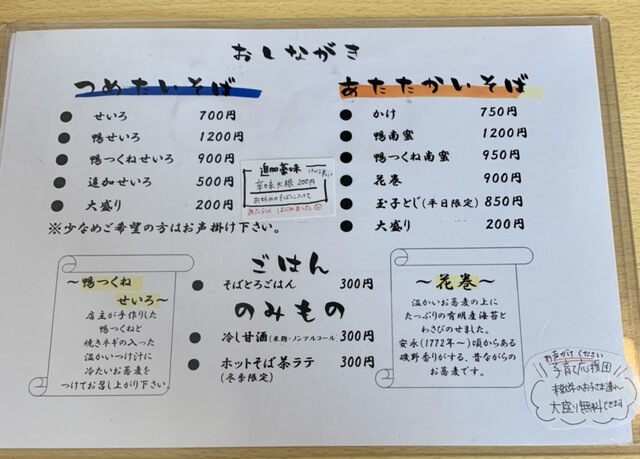 おしながき
つめたいそば
せいろ 700円
鴨せいろ 1200円
鴨つくねせいろ 900円
追加せいろ 500円
大盛り 200円
※少なめご希望の方はお声掛け下さい。
追加薬味
辛味大根 200円
お好みのそばにつけて
あたらしく はじめました
あたたかいそば
かけ 750円
鴨南蜜 1200円
鴨つくね南蜜 950円
花巻 900円
玉子とじ(平日限定) 850円
大盛り 200円
ごはん
そばとろごはん 300円
のみもの
冷し甘酒(米麹・ノンアルコール) 300円
ホットそば茶ラテ 300円
(冬季限定)
～鴨つくね
せいろ～
店主が手作りした
鴨つくねと
焼きネギの入った
温かいつけ汁に
冷たいお蕎麦を
つけてお召し上がり下さい。
～花巻～
温かいお蕎麦の上に
たっぷりの有明産海苔と
わさびのせました。
安永(1772年～)頃からある
磯野香りがする、昔ながらの
お蕎麦です。
お声がけください
子育て応援団
大盛り無料できます